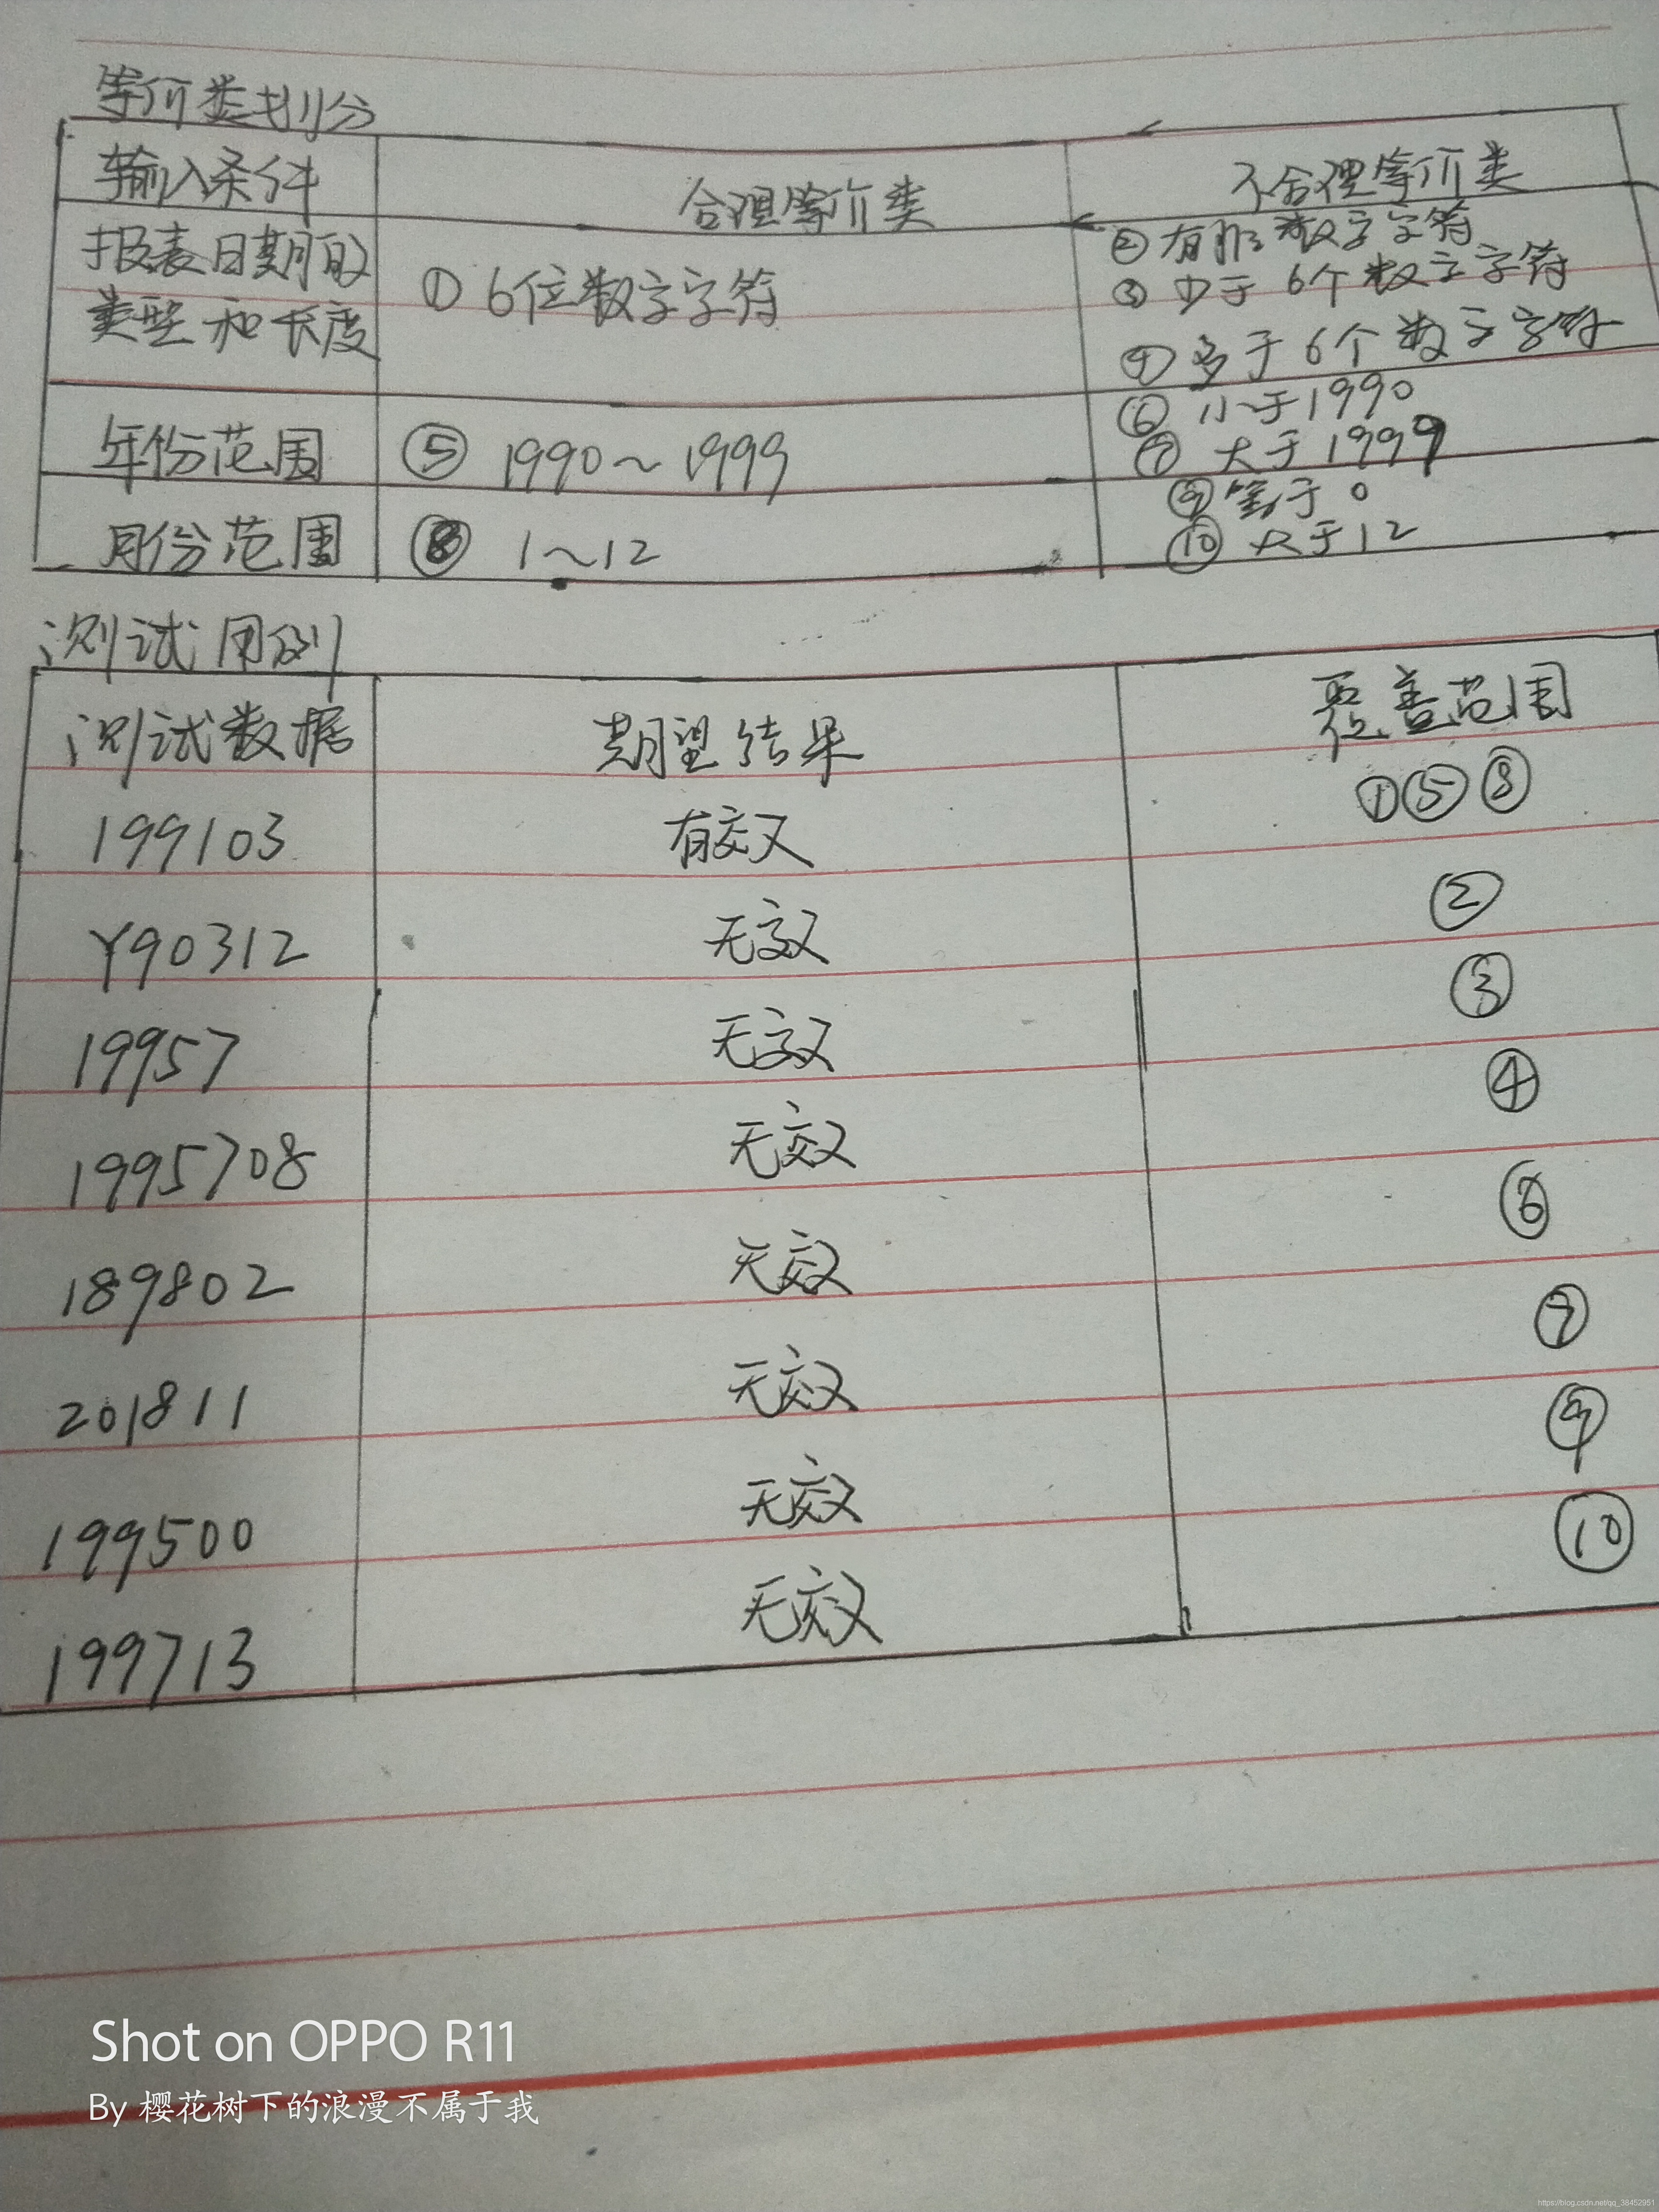 等价类划分
输入条件 合理等价类 不合理等价类
报表日期的
类型和长度 ① 6位数字字符 ② 有非数字字符
③ 少于6个数字字符
④ 多于6个数字字符
年份范围 ⑤ 1990~1999 ⑥ 小于1990
⑦ 大于1999
月份范围 ⑧ 1~12 ⑨ 等于0
⑩ 大于12
测试用例
测试数据 期望结果 覆盖范围
199103 有效 ①⑤⑧
Y90312 无效 ②
19957 无效 ③
1995708 无效 ④
189802 无效 ⑥
201811 无效 ⑦
199500 无效 ⑨
199713 无效 ⑩
Shot on OPPO R11
By 樱花树下的浪漫不属于我
https://blog.csdn.net/qq_38452951